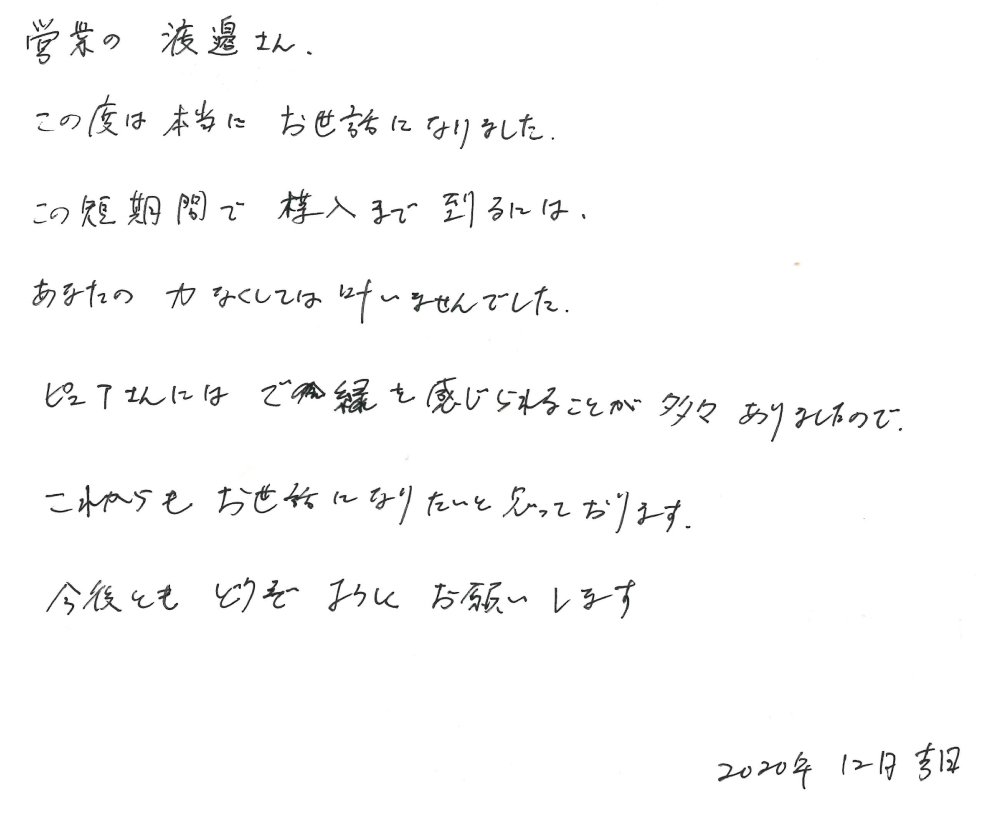 営業の 渡邉さん、
この度は 本当に お世話になりました。
この短期間で まで 到るには、
あなたの 力なくしては 叶いませんでした。
ピュアさんには ご縁を感じられることが 多々 ありましたので、
これからも お世話になりたいと思っております。
今後とも どうぞ よろしく お願いします
2020年 12月 吉日